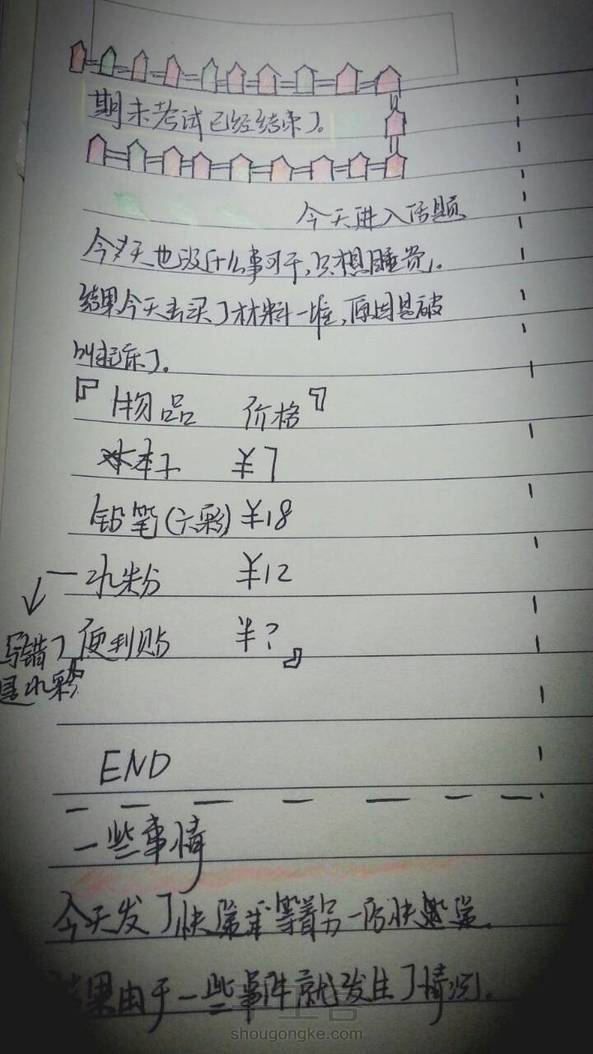 期末考试已经结束了。
今天进入话题
今天也没什么事可干,只想睡觉。
结果今天去买了材料一堆,原因是被
叫起床了。
『物品 价格』
本子 ¥7
铅笔(六彩) ¥18
水粉 ¥12
便利贴 ¥?』
写错了
是水彩
END
一些事情
今天发了快递 等着另一份快递
结果由于一些事件就发生了情况.
shougongke.com